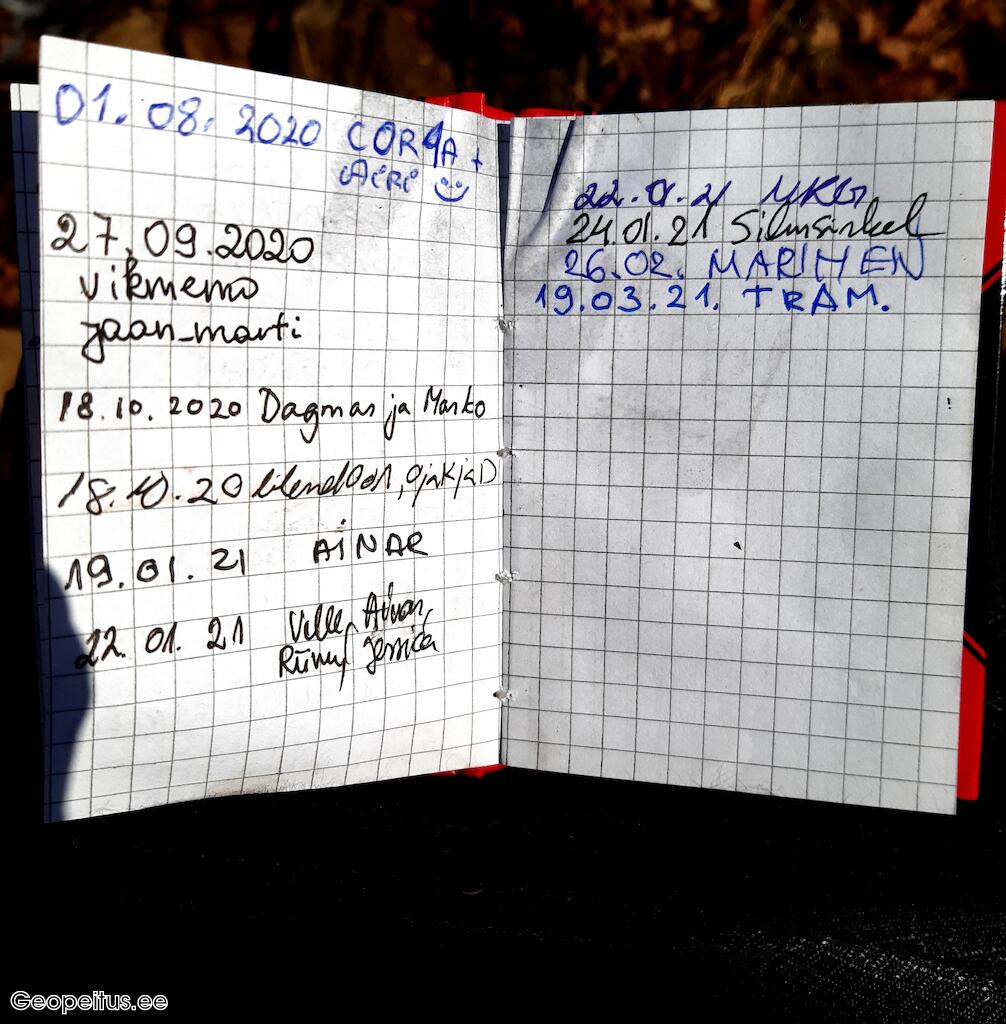 01.08.2020 COR4A +
AiRi
27.09.2020
vikmemo
jaan_marti
18.10.2020 Dagmar ja Marko
18.10.20
19.01.21 AINAR
22.01.21 Ville, Aivar,
Jessica
22.01.21
24.01.21
26.02. MARIHEN
19.03.21. TRAM.
Geopeitus.ee